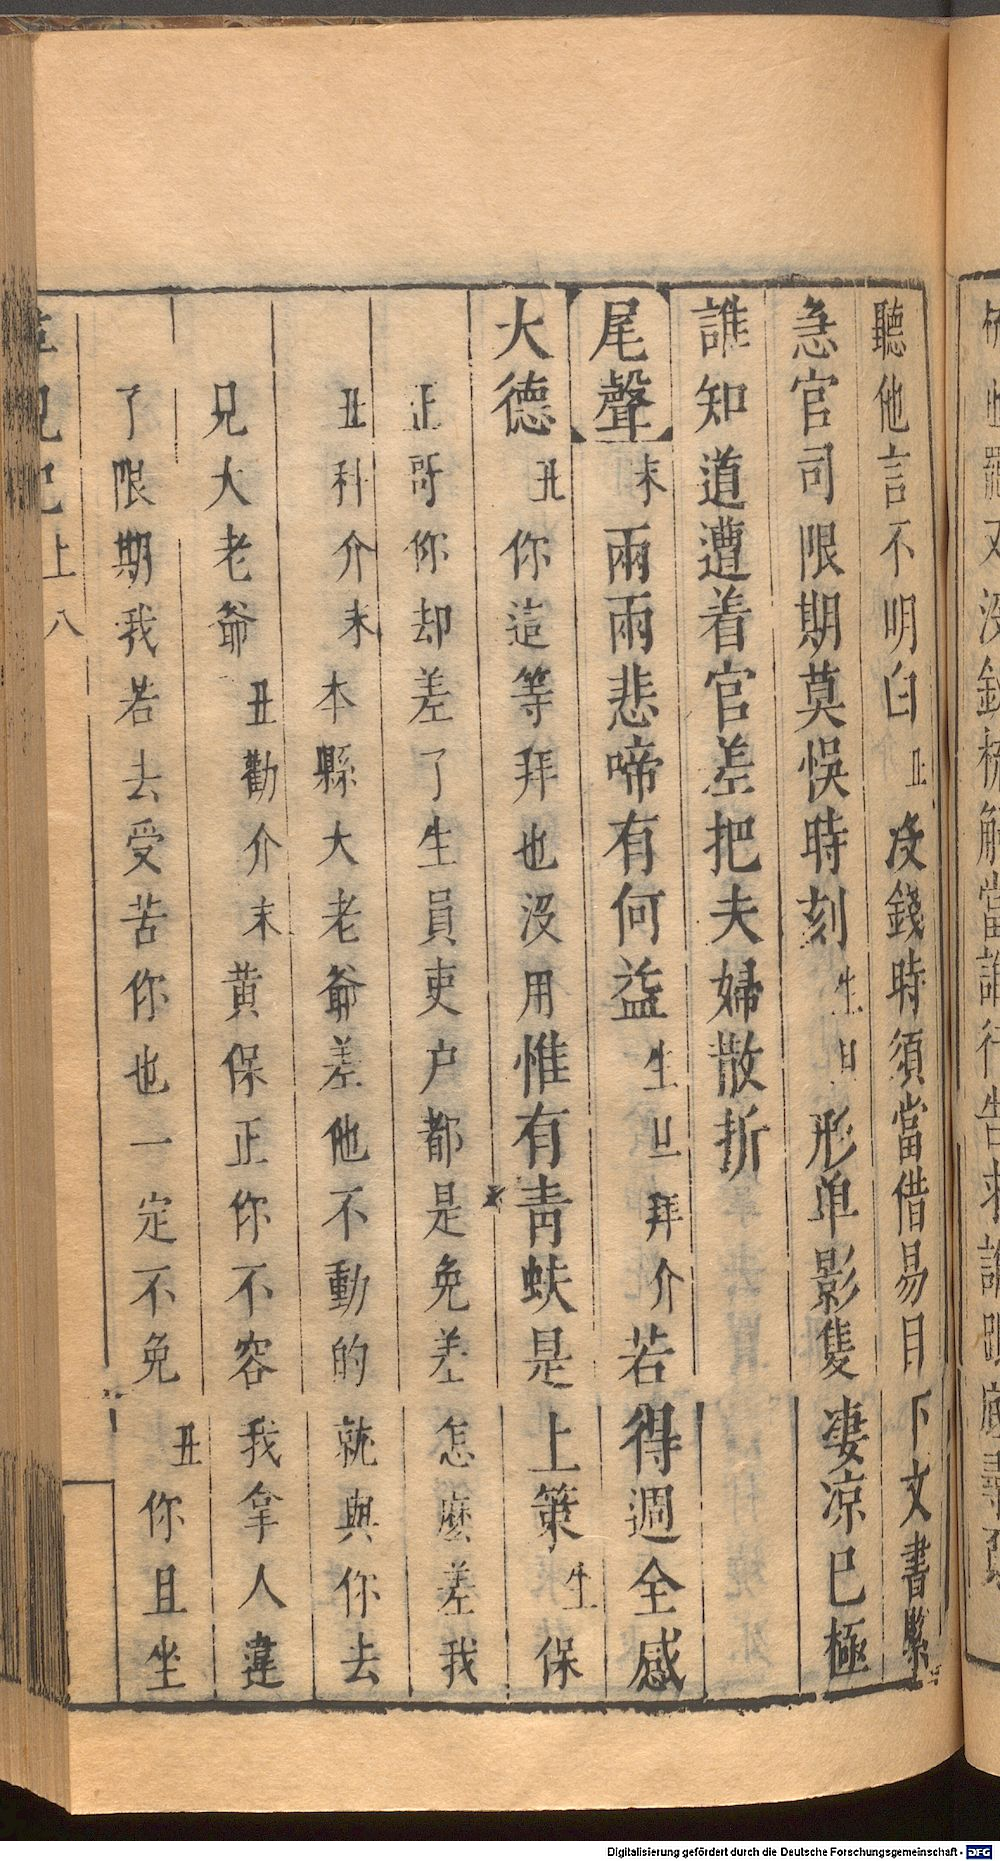 聽他言不明白丑没錢時須當借易目下文書緊
急官司限期莫悞時刻生旦形单影隻凄凉已極
誰知道遭着官差把夫婦散折
尾聲末兩兩悲啼有何益生旦拜介若得週全感
大德丑你這等拜也没用惟有青蚨是上策生保
正哥你却差了生員吏户都是免差怎麽差我
丑科介末本縣大老爺差他不動的就與你去
兄大老爺丑勸介末黄保正你不容我拿人違
了限期我若去受苦你也一定不免丑你且坐
上 八
Digitalisierung gefördert durch die Deutsche Forschungsgemeinschaft - DFG